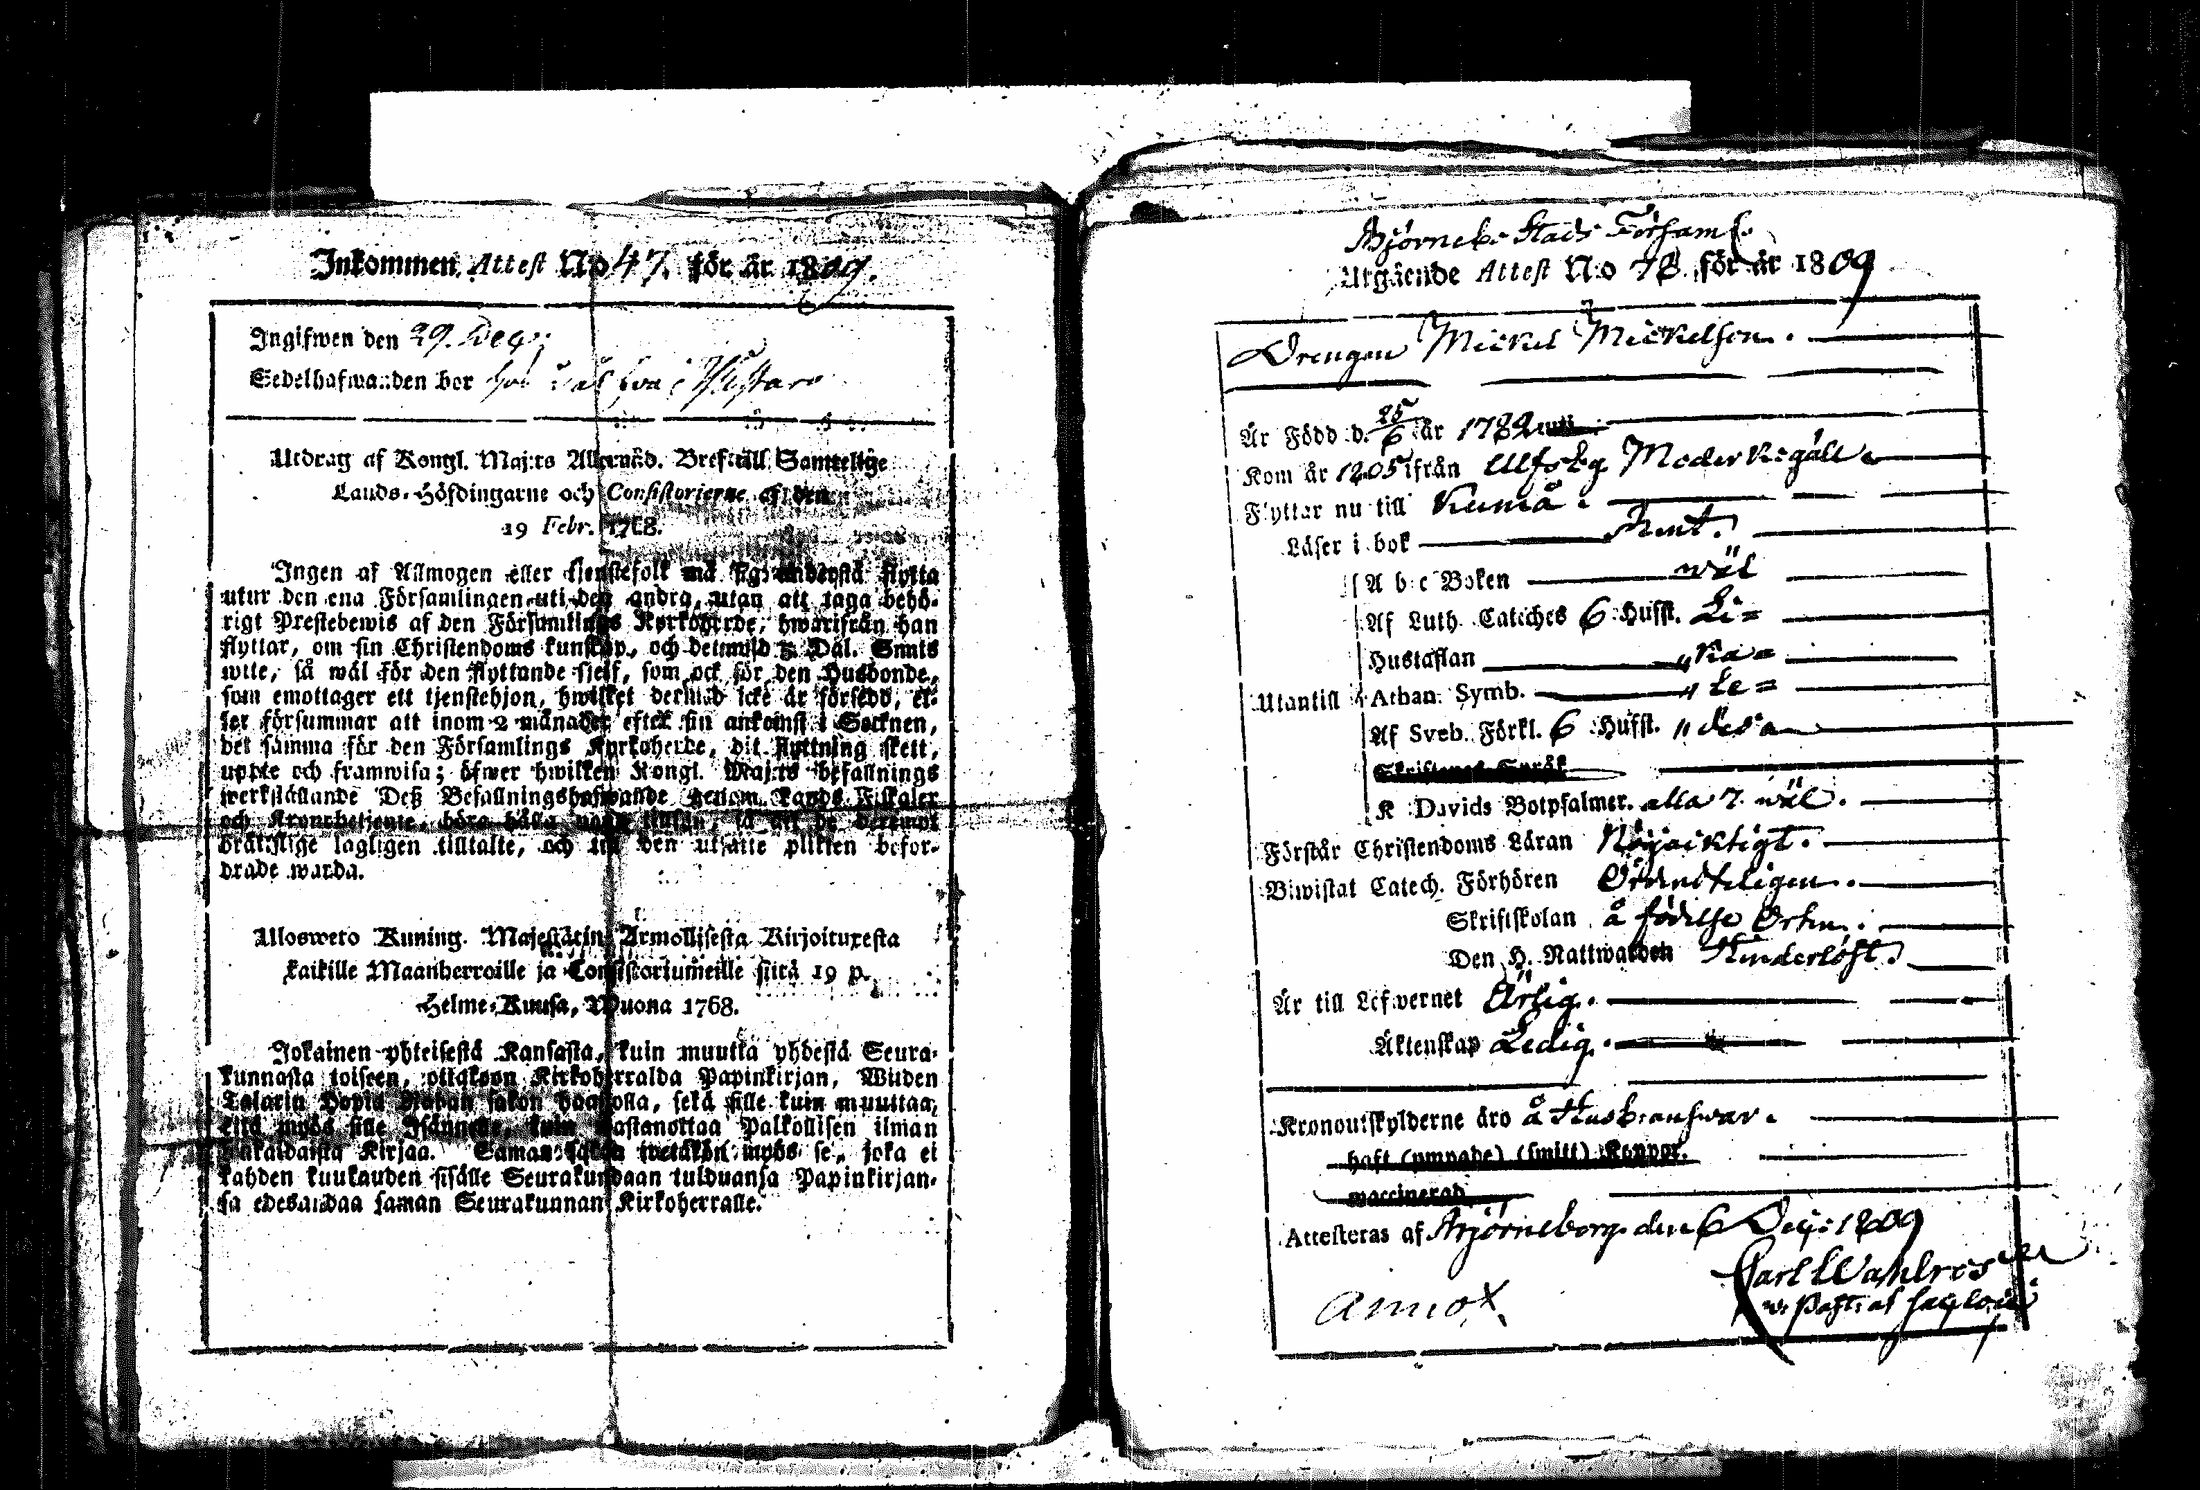 Inkommen Attest No 47. för år 1809.
Ingifwen den 29. Dec:
Sedelhafwanden bor hos i Wistaro
Utdrag af Kongl. Maj:ts Allernåd. Bref till Samtelige
Lands-Höfdingarne och Consistorierne af den
19 Febr. 1768.
Ingen af Allmogen eller tjenstefolk må sig understå flytta
utur den ena Församlingen uti den andra, utan att taga behö-
rigt Prestebewis af den Församlings Kyrkoherde, hwarifrån han
flyttar, om sin Christendoms kunskap, och det wid 5 Dal. Smts
wite, så wäl för den flyttande sjelf, som ock för den Husbonde,
som emottager ett tjenstehjon, hwilket dermed icke är försedd, el-
ler försummar att inom 2 månader efter sin ankomst i Socknen,
det samma för den Församlings Kyrkoherde, dit flyttning skett,
uppte och framwisa; öfwer hwilken Kongl. Maj:ts befallnings
werkställande Deß Befallningshafwande genom Lands Fiskaler
och Kronobetjente, böra hålla noga tillsyn, så att de deremot
brättslige lagligen tilltalte, och till den utsatte plikten befor-
drade warda.
Ulosweto Kuning. Majestätin Armollisesta Kirjoituxesta
kaikille Maanherroille ja Consistoriumeille siitä 19 p.
Helme-Kuusa, Wuona 1768.
Jokainen yhteisestä Kansasta, kuin muutta yhdestä Seura-
kunnasta toiseen, ottakoon Kirkoherralda Papinkirjan, Wiiden
Talarin Hopia Rahan sakon haastolla, sekä sille kuin muuttaa,
että myös sille Isännelle, kuin wastanottaa Palkollisen ilman
senkaldaista Kirjaa. Saman sakon wetäkön myös se, joka ei
kahden kuukauden sisälle Seurakundaan tulduansa Papinkirjan-
sa edesandaa saman Seurakunnan Kirkoherralle.
Björnebo Stads Församl:
Utgående Attest No 78. för år 1809
Drengen Mickel Mickelsson.
Är Född d. 25/6 år 1782
Kom år 1805 ifrån Ulfsby Moderkegäll
Flyttar nu till Kumå.
Läser i bok Kent.
A b c Boken wäl
Af Luth. Cateches 6 Hufst. Li=
Hustaflan "ka=
Utantill Athan. Symb. "le=
Af Sveb. Förkl. 6 Hufst. "desa
Skriftenes Språk
K Davids Botpsalmer. alla 7. wäl.
Förstår Christendoms Läran Nöjacktigt.
Biwistat Catech. Förhören Ordenteligen.
Skriftskolan å födelse Orten.
Den H. Nattwarden Hinderlöst.
Är till Lefwernet Ärlig.
Äktenskap Ledig.
Kronoutskylderne äro å Husb: answar.
haft (ympade) (smitt) Koppor.
vaccinerad
Attesteras af Björneborg den 6 Dec: 1809
Carl Wahlroos
v. Past: af
Annot.